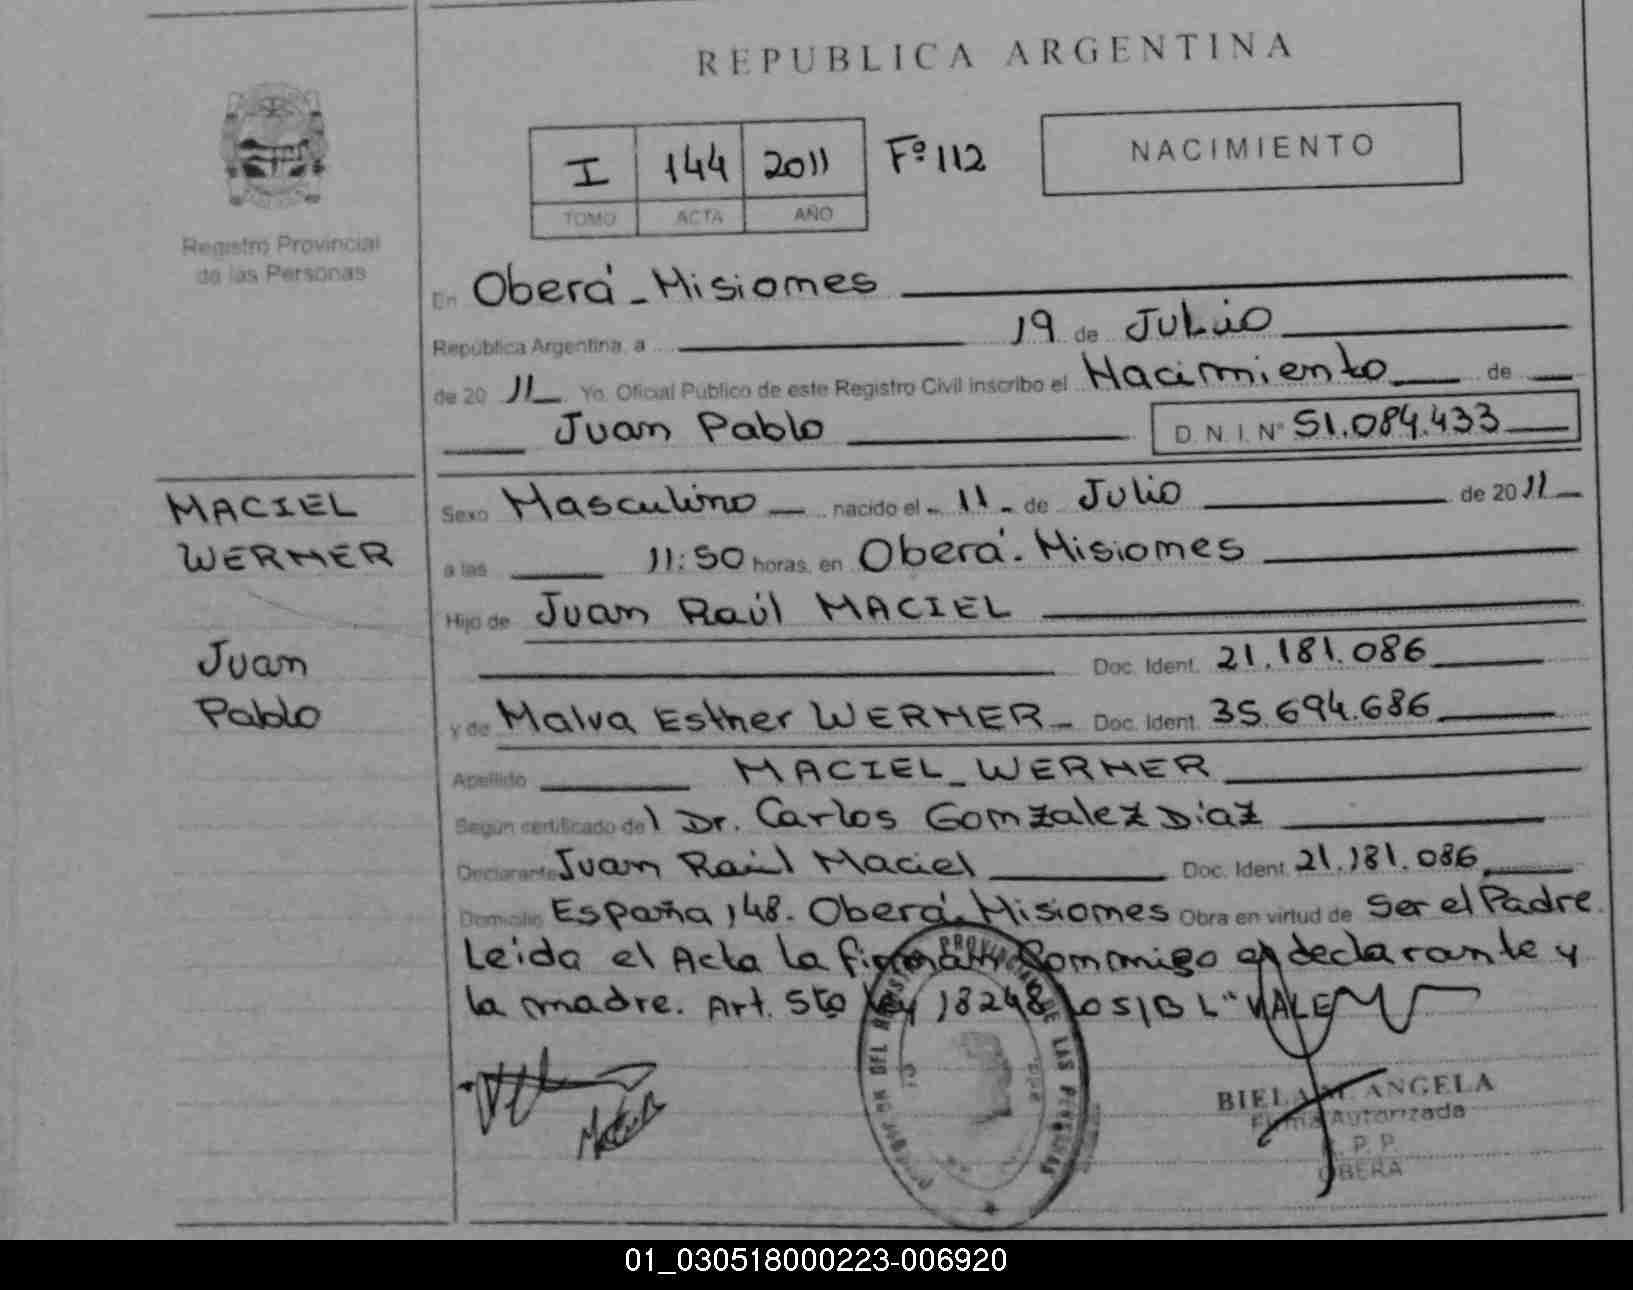 REPUBLICA ARGENTINA
I 144 2011 Fº 112
TOMO ACTA AÑO
NACIMIENTO
Registro Provincial
de las Personas
En Oberá - Misiones
República Argentina, a 19 de Julio
de 20 11 Yo, Oficial Público de este Registro Civil inscribo el Nacimiento de
Juan Pablo D.N.I. Nº 51.084.433
MACIEL
WERNER
Juan
Pablo
Sexo Masculino nacido el - 11 - de Julio de 20 11
a las 11:50 horas, en Oberá - Misiones
Hijo de Juan Raúl MACIEL
Doc. Ident. 21.181.086
y de Malva Esther WERNER Doc. Ident. 35.694.686
Apellido MACIEL WERNER
Según certificado del Dr. Carlos Gonzalez Diaz
Declarante Juan Raúl Maciel Doc. Ident. 21.181.086
Domicilio España 148. Oberá. Misiones Obra en virtud de Ser el Padre.
Leida el Acta la firman Conmigo el declarante y
la madre. Art. 5to ley 18248 S/B L "VALE
DEL LAS PERSONAS
BIELA M. ANGELA
Firma Autorizada
R. P. P.
OBERA
01_030518000223-006920